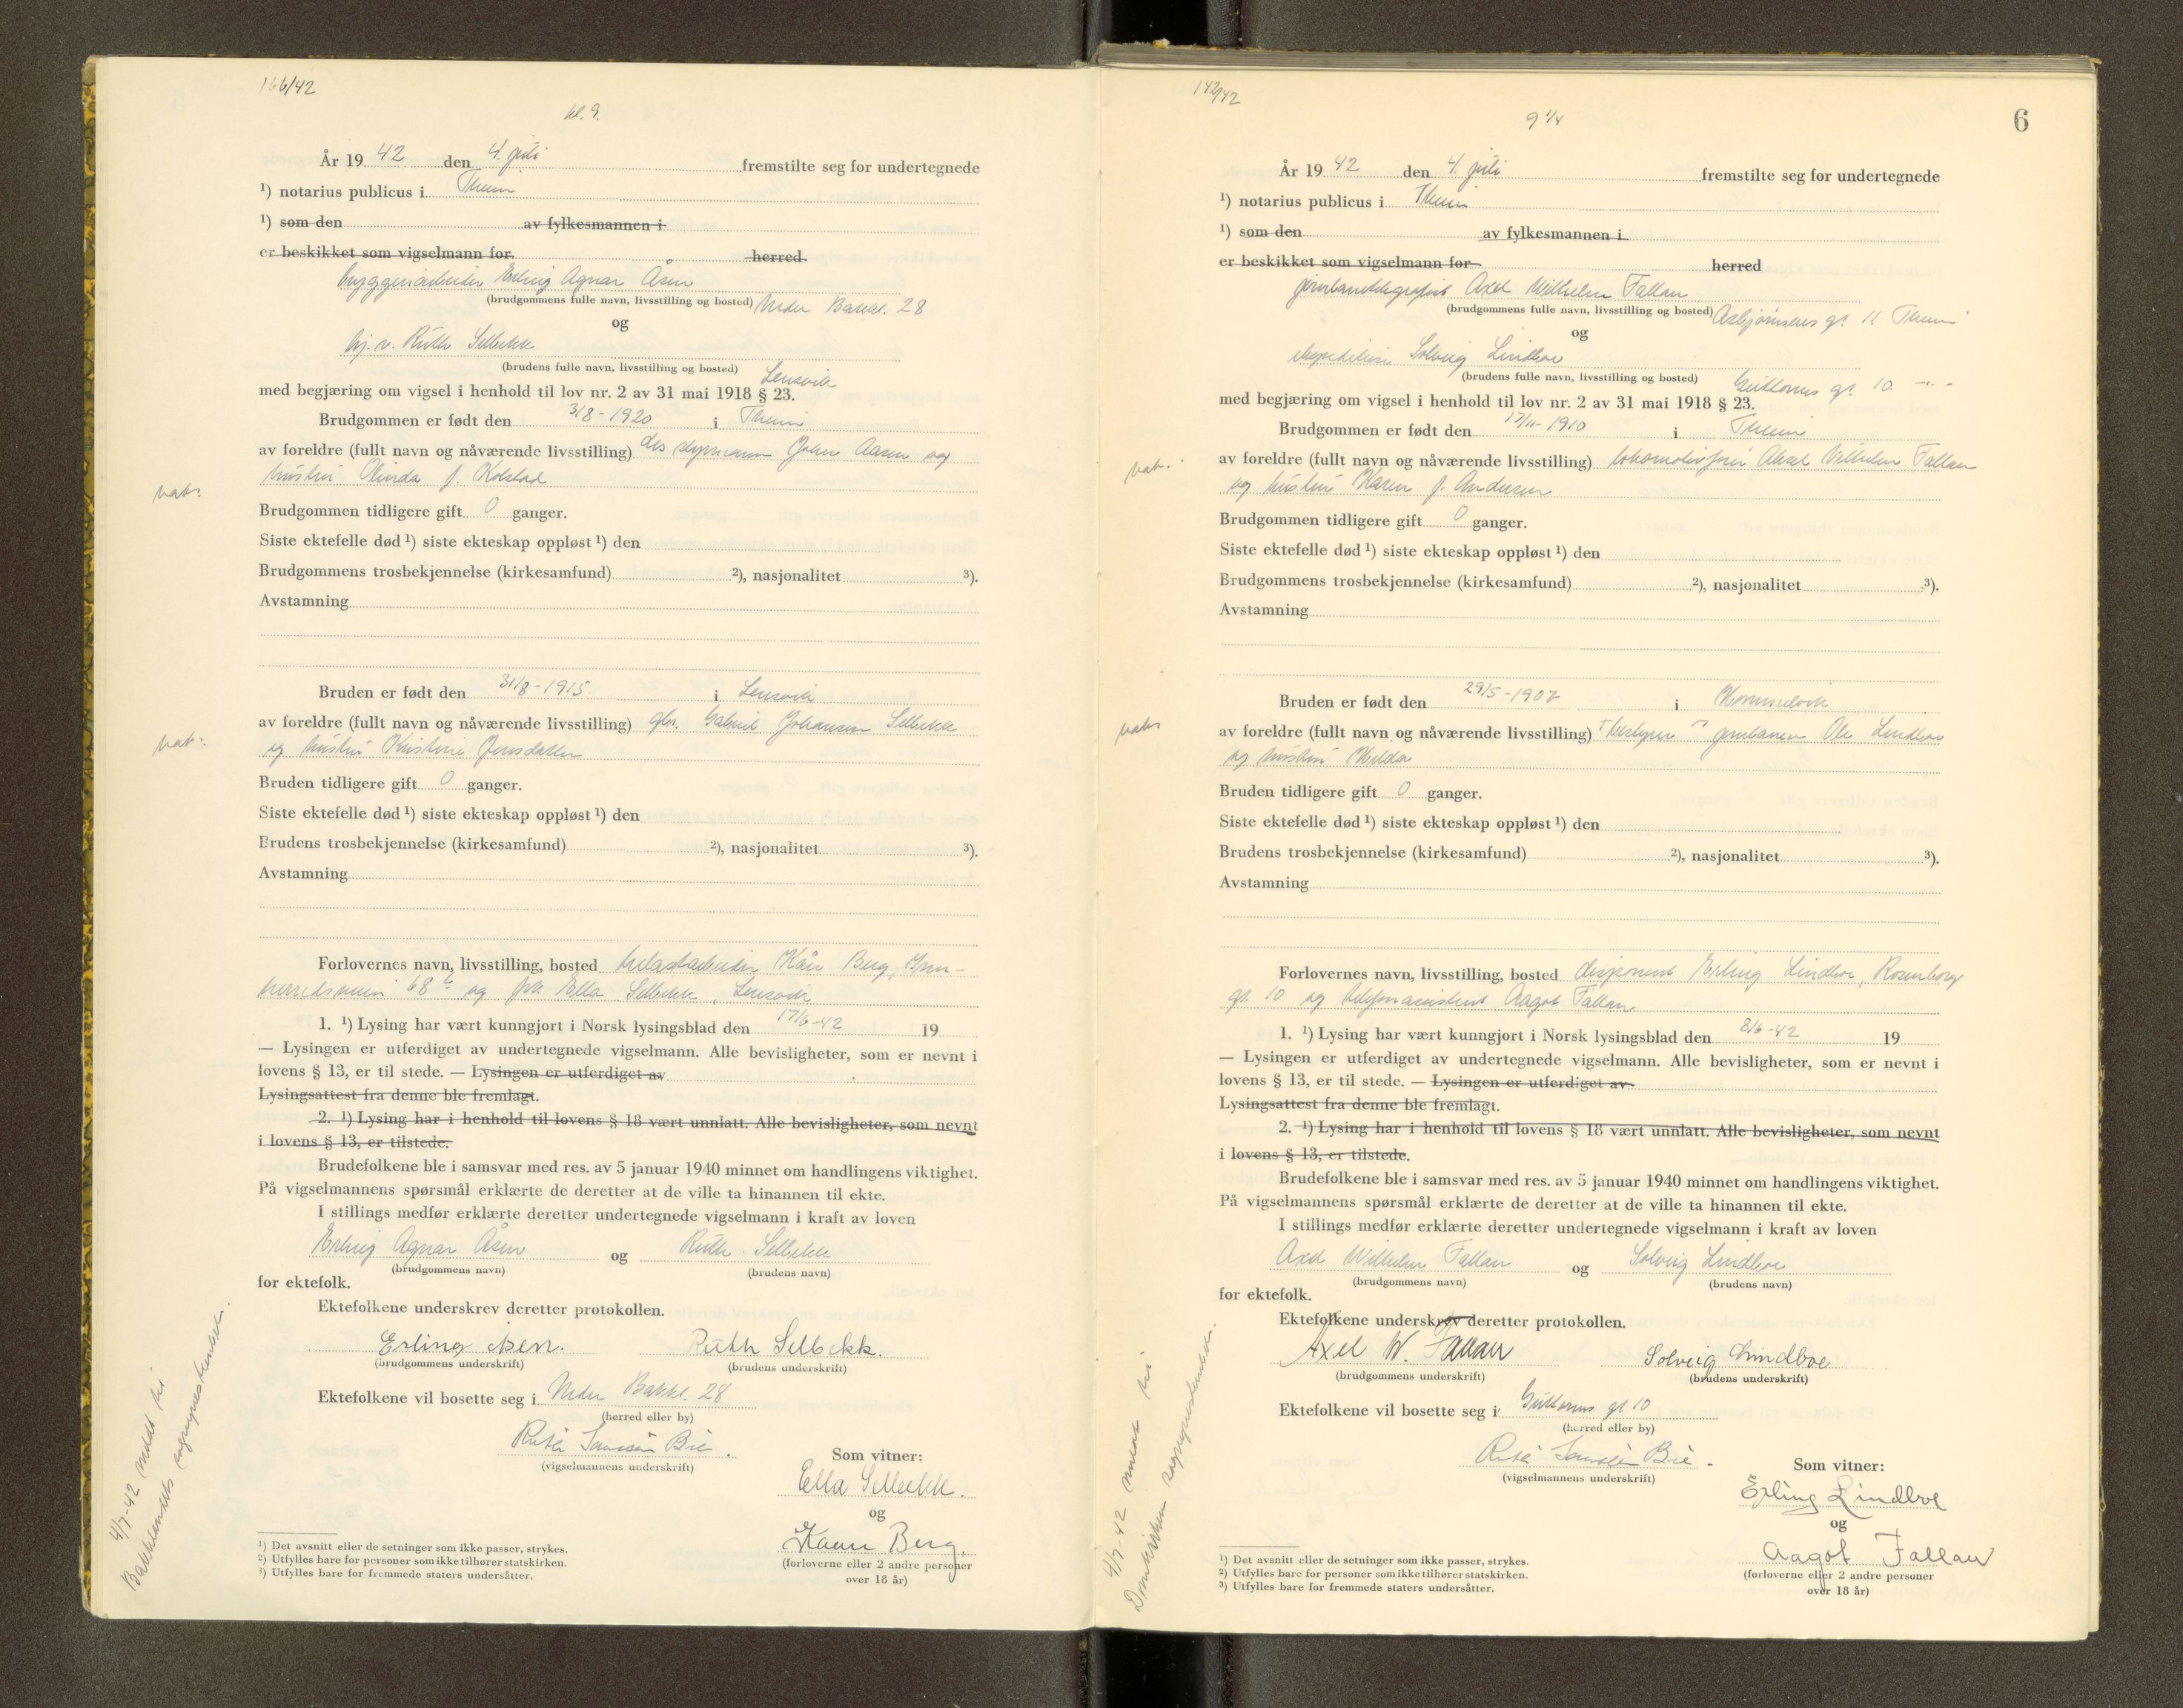 166/42
kl. 9.
År 19 42 den 4. juli fremstilte seg for undertegnede
¹) notarius publicus i Theim
¹) som den av fylkesmannen i
er beskikket som vigselmann for herred.
bryggeriarbeider Erling Agnar Åsen
(brudgommens fulle navn, livsstilling og bosted) Nedre Bakkl. 28
og
hj.v. Ruth Selbekk
(brudens fulle navn, livsstilling og bosted) Lensvik
med begjæring om vigsel i henhold til lov nr. 2 av 31 mai 1918 § 23.
Brudgommen er født den 3/8-1920 i Theim
av foreldre (fullt navn og nåværende livsstilling) styrmann John Aasen og
hustru Olinda f. Kolstad
vak:
Brudgommen tidligere gift 0 ganger.
Siste ektefelle død ¹) siste ekteskap oppløst ¹) den
Brudgommens trosbekjennelse (kirkesamfund) ²), nasjonalitet ³).
Avstamning
Bruden er født den 31/8-1915 i Lensvik
av foreldre (fullt navn og nåværende livsstilling) gbr. Gabriel Johansen Selbekk
og hustru Kristine Jensdatter
vak:
Bruden tidligere gift 0 ganger.
Siste ektefelle død ¹) siste ekteskap oppløst ¹) den
Brudens trosbekjennelse (kirkesamfund) ²), nasjonalitet ³).
Avstamning
Forlovernes navn, livsstilling, bosted Kåre Berg, Inn-
herredsveien 68 og frk Ella Selbekk, Lensvik
1. ¹) Lysing har vært kunngjort i Norsk lysingsblad den 17/6-42 19
— Lysingen er utferdiget av undertegnede vigselmann. Alle bevisligheter, som er nevnt i
lovens § 13, er til stede. — Lysingen er utferdiget av
Lysingsattest fra denne ble fremlagt.
2. ¹) Lysing har i henhold til lovens § 18 vært unnlatt. Alle bevisligheter, som nevnt
i lovens § 13, er tilstede.
Brudefolkene ble i samsvar med res. av 5 januar 1940 minnet om handlingens viktighet.
På vigselmannens spørsmål erklærte de deretter at de ville ta hinannen til ekte.
I stillings medfør erklærte deretter undertegnede vigselmann i kraft av loven
Erling Agnar Åsen og Ruth Selbekk
(brudgommens navn) (brudens navn)
for ektefolk.
Ektefolkene underskrev deretter protokollen.
Erling Åsen. Ruth Selbekk.
(brudgommens underskrift) (brudens underskrift)
Ektefolkene vil bosette seg i Nedre Bakkl. 28
(herred eller by)
(vigselmannens underskrift)
Som vitner:
Ella Selbekk.
og
Kaare Berg.
(forloverne eller 2 andre personer
over 18 år)
4/7-42 meldt til
Bakklandets sogneprestembede.
¹) Det avsnitt eller de setninger som ikke passer, strykes.
²) Utfylles bare for personer som ikke tilhører statskirken.
³) Utfylles bare for fremmede staters undersåtter.
142/42
9 1/4
6
År 19 42 den 4. juli fremstilte seg for undertegnede
¹) notarius publicus i Theim
¹) som den av fylkesmannen i
er beskikket som vigselmann for herred
jernbanetelegrafist Axel Wilhelm Fallan
(brudgommens fulle navn, livsstilling og bosted) Asbjørnsens gt. 11 Theim
og
ekspeditrise Solveig Lindboe
(brudens fulle navn, livsstilling og bosted) Guttorms gt. 10 -"-
med begjæring om vigsel i henhold til lov nr. 2 av 31 mai 1918 § 23.
Brudgommen er født den 17/11-1910 i Theim
av foreldre (fullt navn og nåværende livsstilling) lokomotivfører Aksel Vilhelm Fallan
og hustru Karen f. Andersen
vak:
Brudgommen tidligere gift 0 ganger.
Siste ektefelle død ¹) siste ekteskap oppløst ¹) den
Brudgommens trosbekjennelse (kirkesamfund) ²), nasjonalitet ³).
Avstamning
Bruden er født den 29/5-1907 i Hommelvik
av foreldre (fullt navn og nåværende livsstilling) jernbanen Ole Lindboe
og hustru Hilda
vak:
Bruden tidligere gift 0 ganger.
Siste ektefelle død ¹) siste ekteskap oppløst ¹) den
Brudens trosbekjennelse (kirkesamfund) ²), nasjonalitet ³).
Avstamning
Forlovernes navn, livsstilling, bosted disponent Erling Lindboe, Rosenborg
gt. 10 og telefonassistent Aagot Fallan
1. ¹) Lysing har vært kunngjort i Norsk lysingsblad den 8/6-42 19
— Lysingen er utferdiget av undertegnede vigselmann. Alle bevisligheter, som er nevnt i
lovens § 13, er til stede. — Lysingen er utferdiget av
Lysingsattest fra denne ble fremlagt.
2. ¹) Lysing har i henhold til lovens § 18 vært unnlatt. Alle bevisligheter, som nevnt
i lovens § 13, er tilstede.
Brudefolkene ble i samsvar med res. av 5 januar 1940 minnet om handlingens viktighet.
På vigselmannens spørsmål erklærte de deretter at de ville ta hinannen til ekte.
I stillings medfør erklærte deretter undertegnede vigselmann i kraft av loven
Axel Wilhelm Fallan og Solveig Lindboe
(brudgommens navn) (brudens navn)
for ektefolk.
Ektefolkene underskrev deretter protokollen.
Axel W. Fallan Solveig Lindboe
(brudgommens underskrift) (brudens underskrift)
Ektefolkene vil bosette seg i Guttorms gt 10
(herred eller by)
(vigselmannens underskrift)
Som vitner:
Erling Lindboe
og
Aagot Fallan
(forloverne eller 2 andre personer
over 18 år)
4/7-42 meldt til
Domkirken sogneprestembede.
¹) Det avsnitt eller de setninger som ikke passer, strykes.
²) Utfylles bare for personer som ikke tilhører statskirken.
³) Utfylles bare for fremmede staters undersåtter.